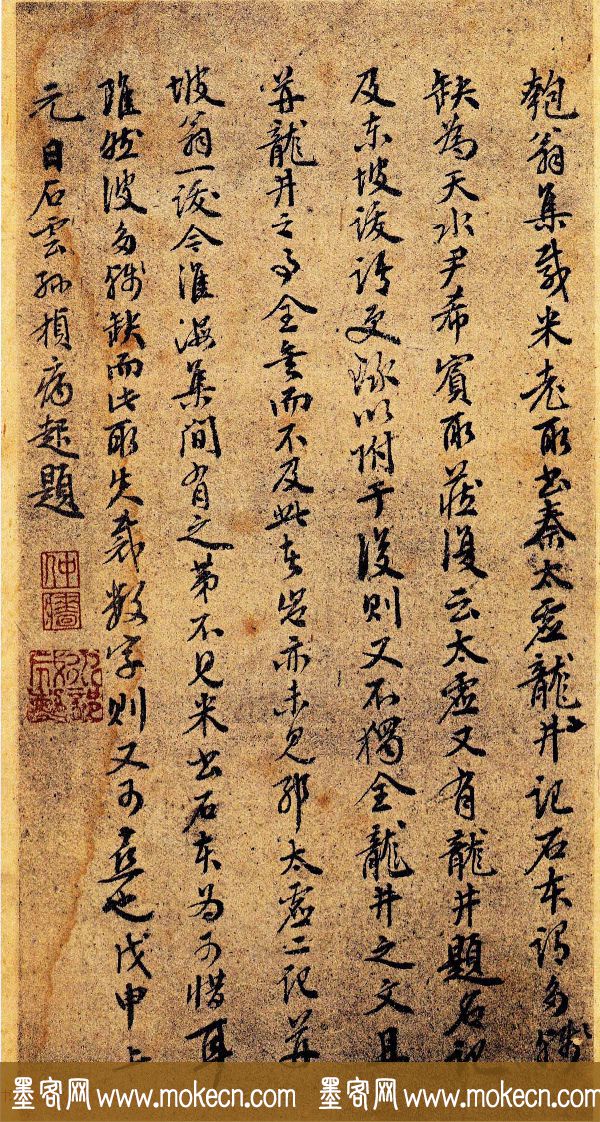 匏翁集載米老所書秦太虛龍井記石本謂多殘
缺為天水尹希賓所藏復云太虛又有龍井題名記
及東坡跋請更琢以附于後則又不獨全龍井之文且
并龍井之事全矣而不及此豈當亦未見耶太虛二記并
坡翁一跋今淮海集間有之第不見米書石本為可惜耳
雖然彼多殘缺而此所失裁數字則又可喜也戊申上
元日石雲孫楨病起題
仲墻
墨客网 www.mokecn.com 墨客网 www.mokecn.com